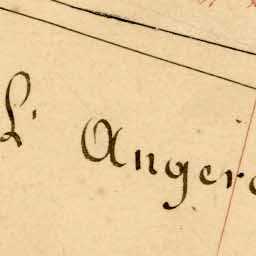 L' Anger